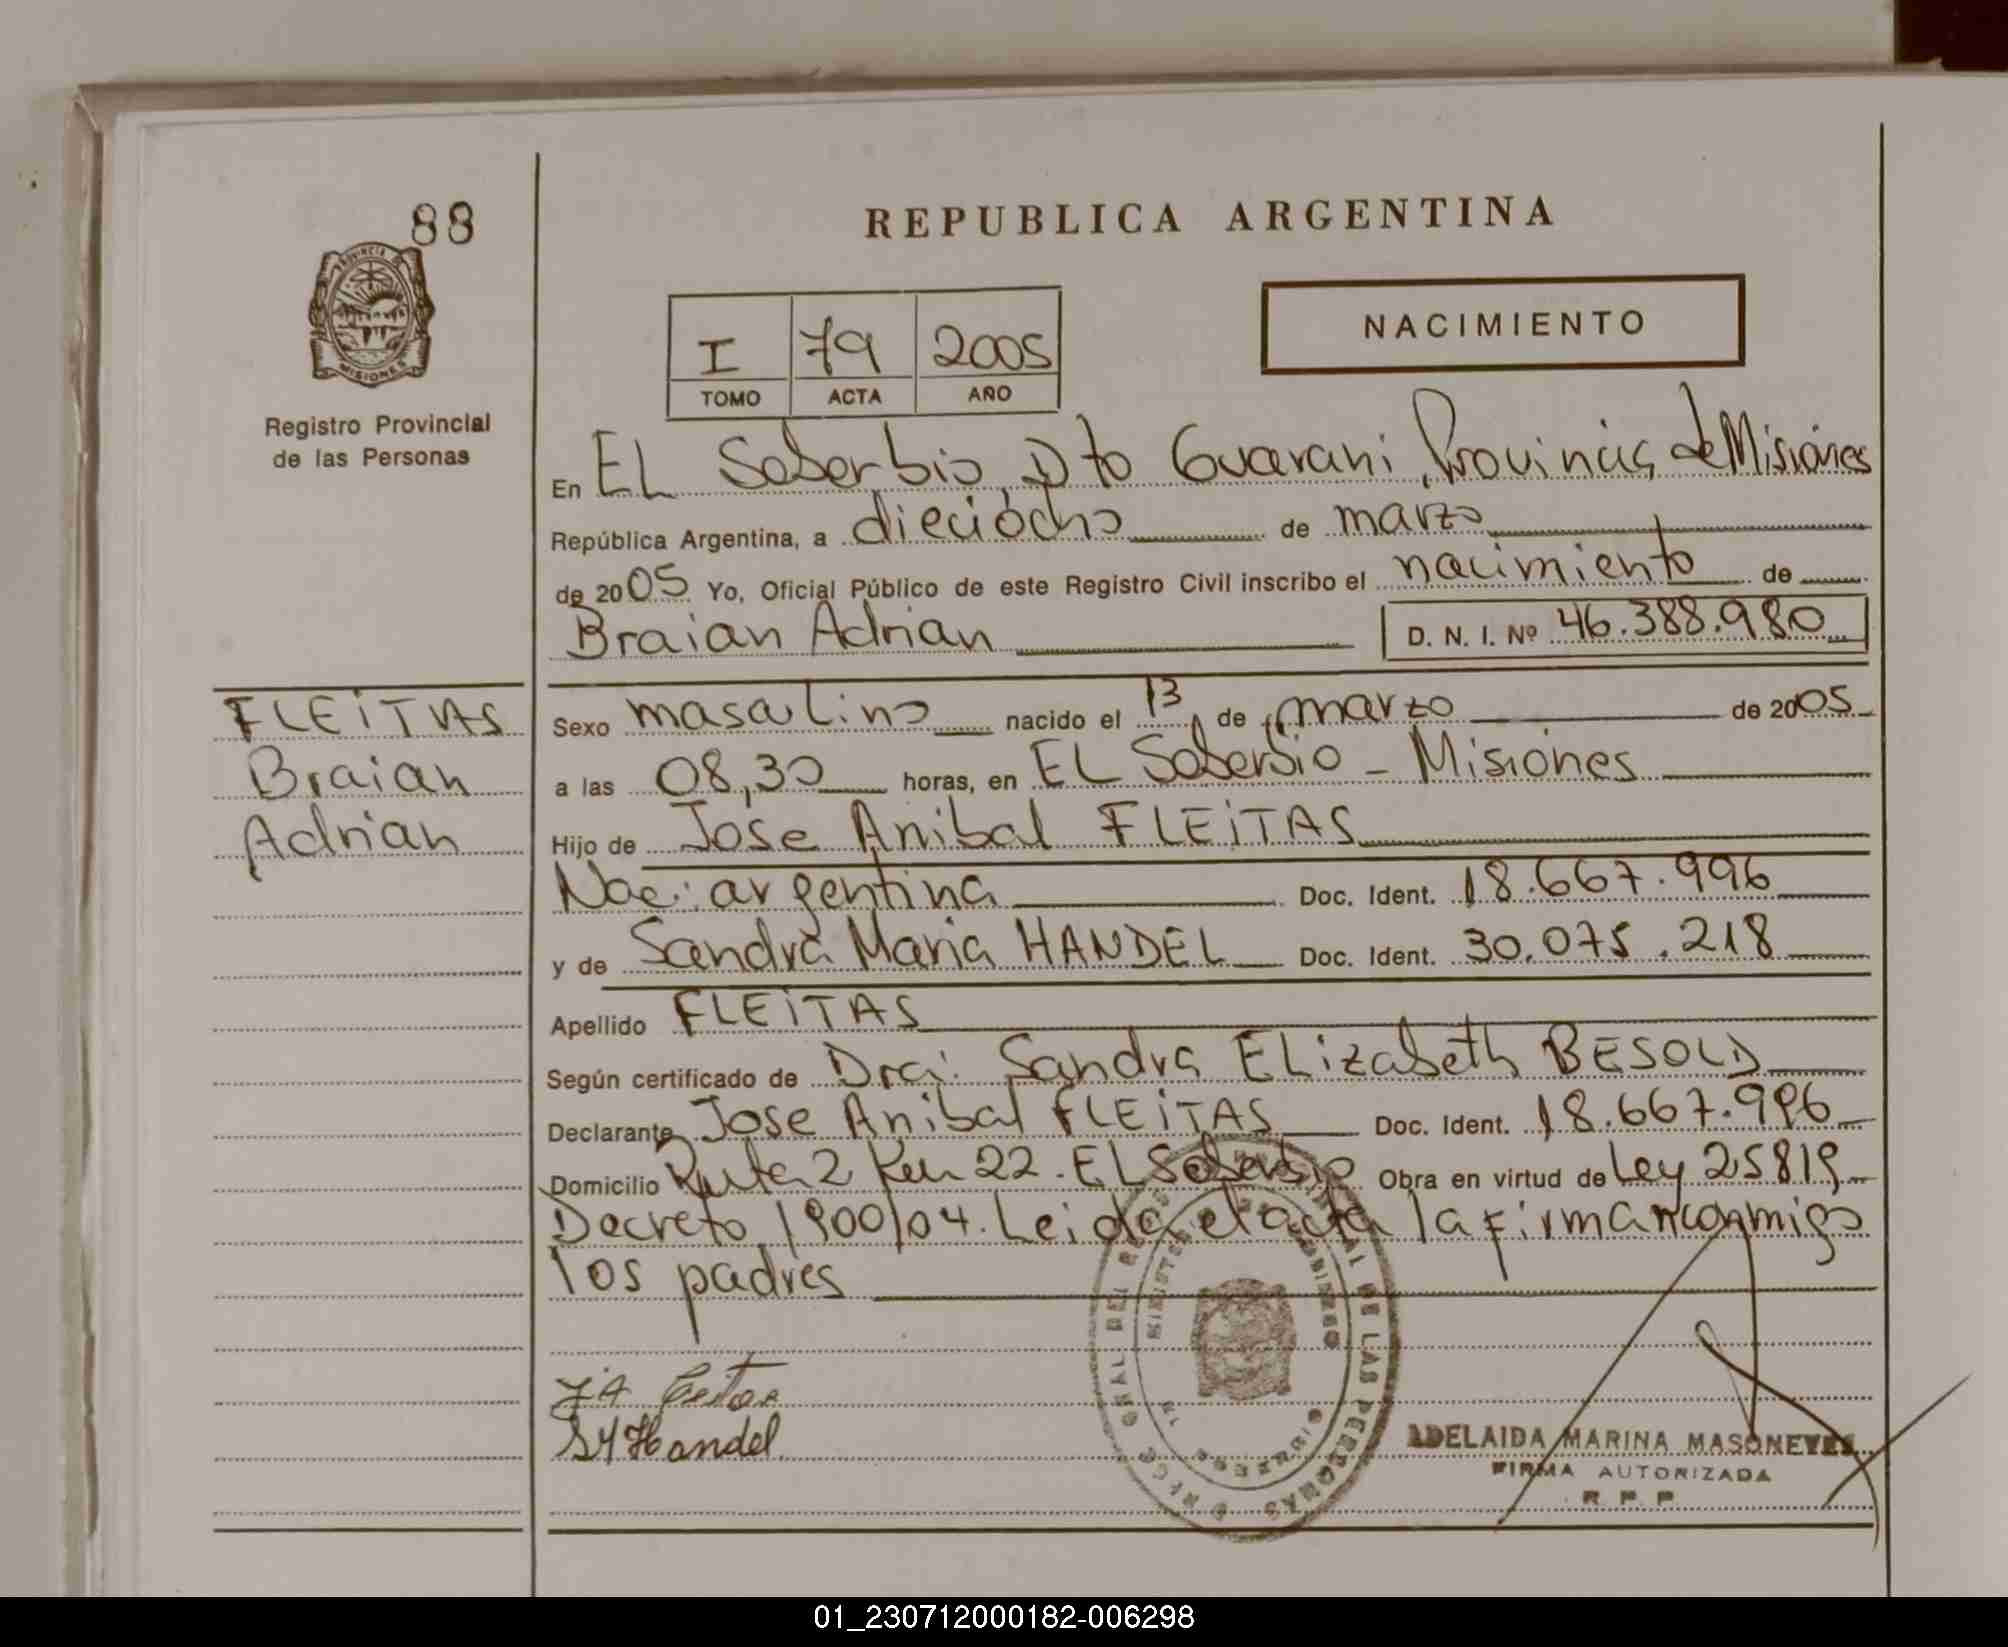 88
PROVINCIA DE
MISIONES
Registro Provincial
de las Personas
REPUBLICA ARGENTINA
I 79 2005
TOMO ACTA AÑO
NACIMIENTO
En EL Soberbio, Dto Guarani, Provincia de Misiones
República Argentina, a dieciocho de marzo
de 2005 Yo, Oficial Público de este Registro Civil inscribo el nacimiento de
Braian Adrian D. N. I. Nº 46.388.980
FLEiTAS
Braian
Adrian
Sexo masculino nacido el 13 de marzo de 2005
a las 08,30 horas, en EL Soberbio - Misiones
Hijo de Jose Anibal FLEiTAS
Nac: argentina Doc. Ident. 18.667.996
y de Sandra Maria HANDEL Doc. Ident. 30.075.218
Apellido FLEiTAS
Según certificado de Dra: Sandra ELizabeth BESOLD
Declarante Jose Anibal FLEiTAS Doc. Ident. 18.667.996
Domicilio Ruta 2 Km 22. EL Soberbio Obra en virtud de Ley 25819
Decreto 1900/04. Leida el acta la firman conmigo
los padres
SM Handel
ADELAIDA MARINA MASONEVES
FIRMA AUTORIZADA
R. P. P.
01_230712000182-006298